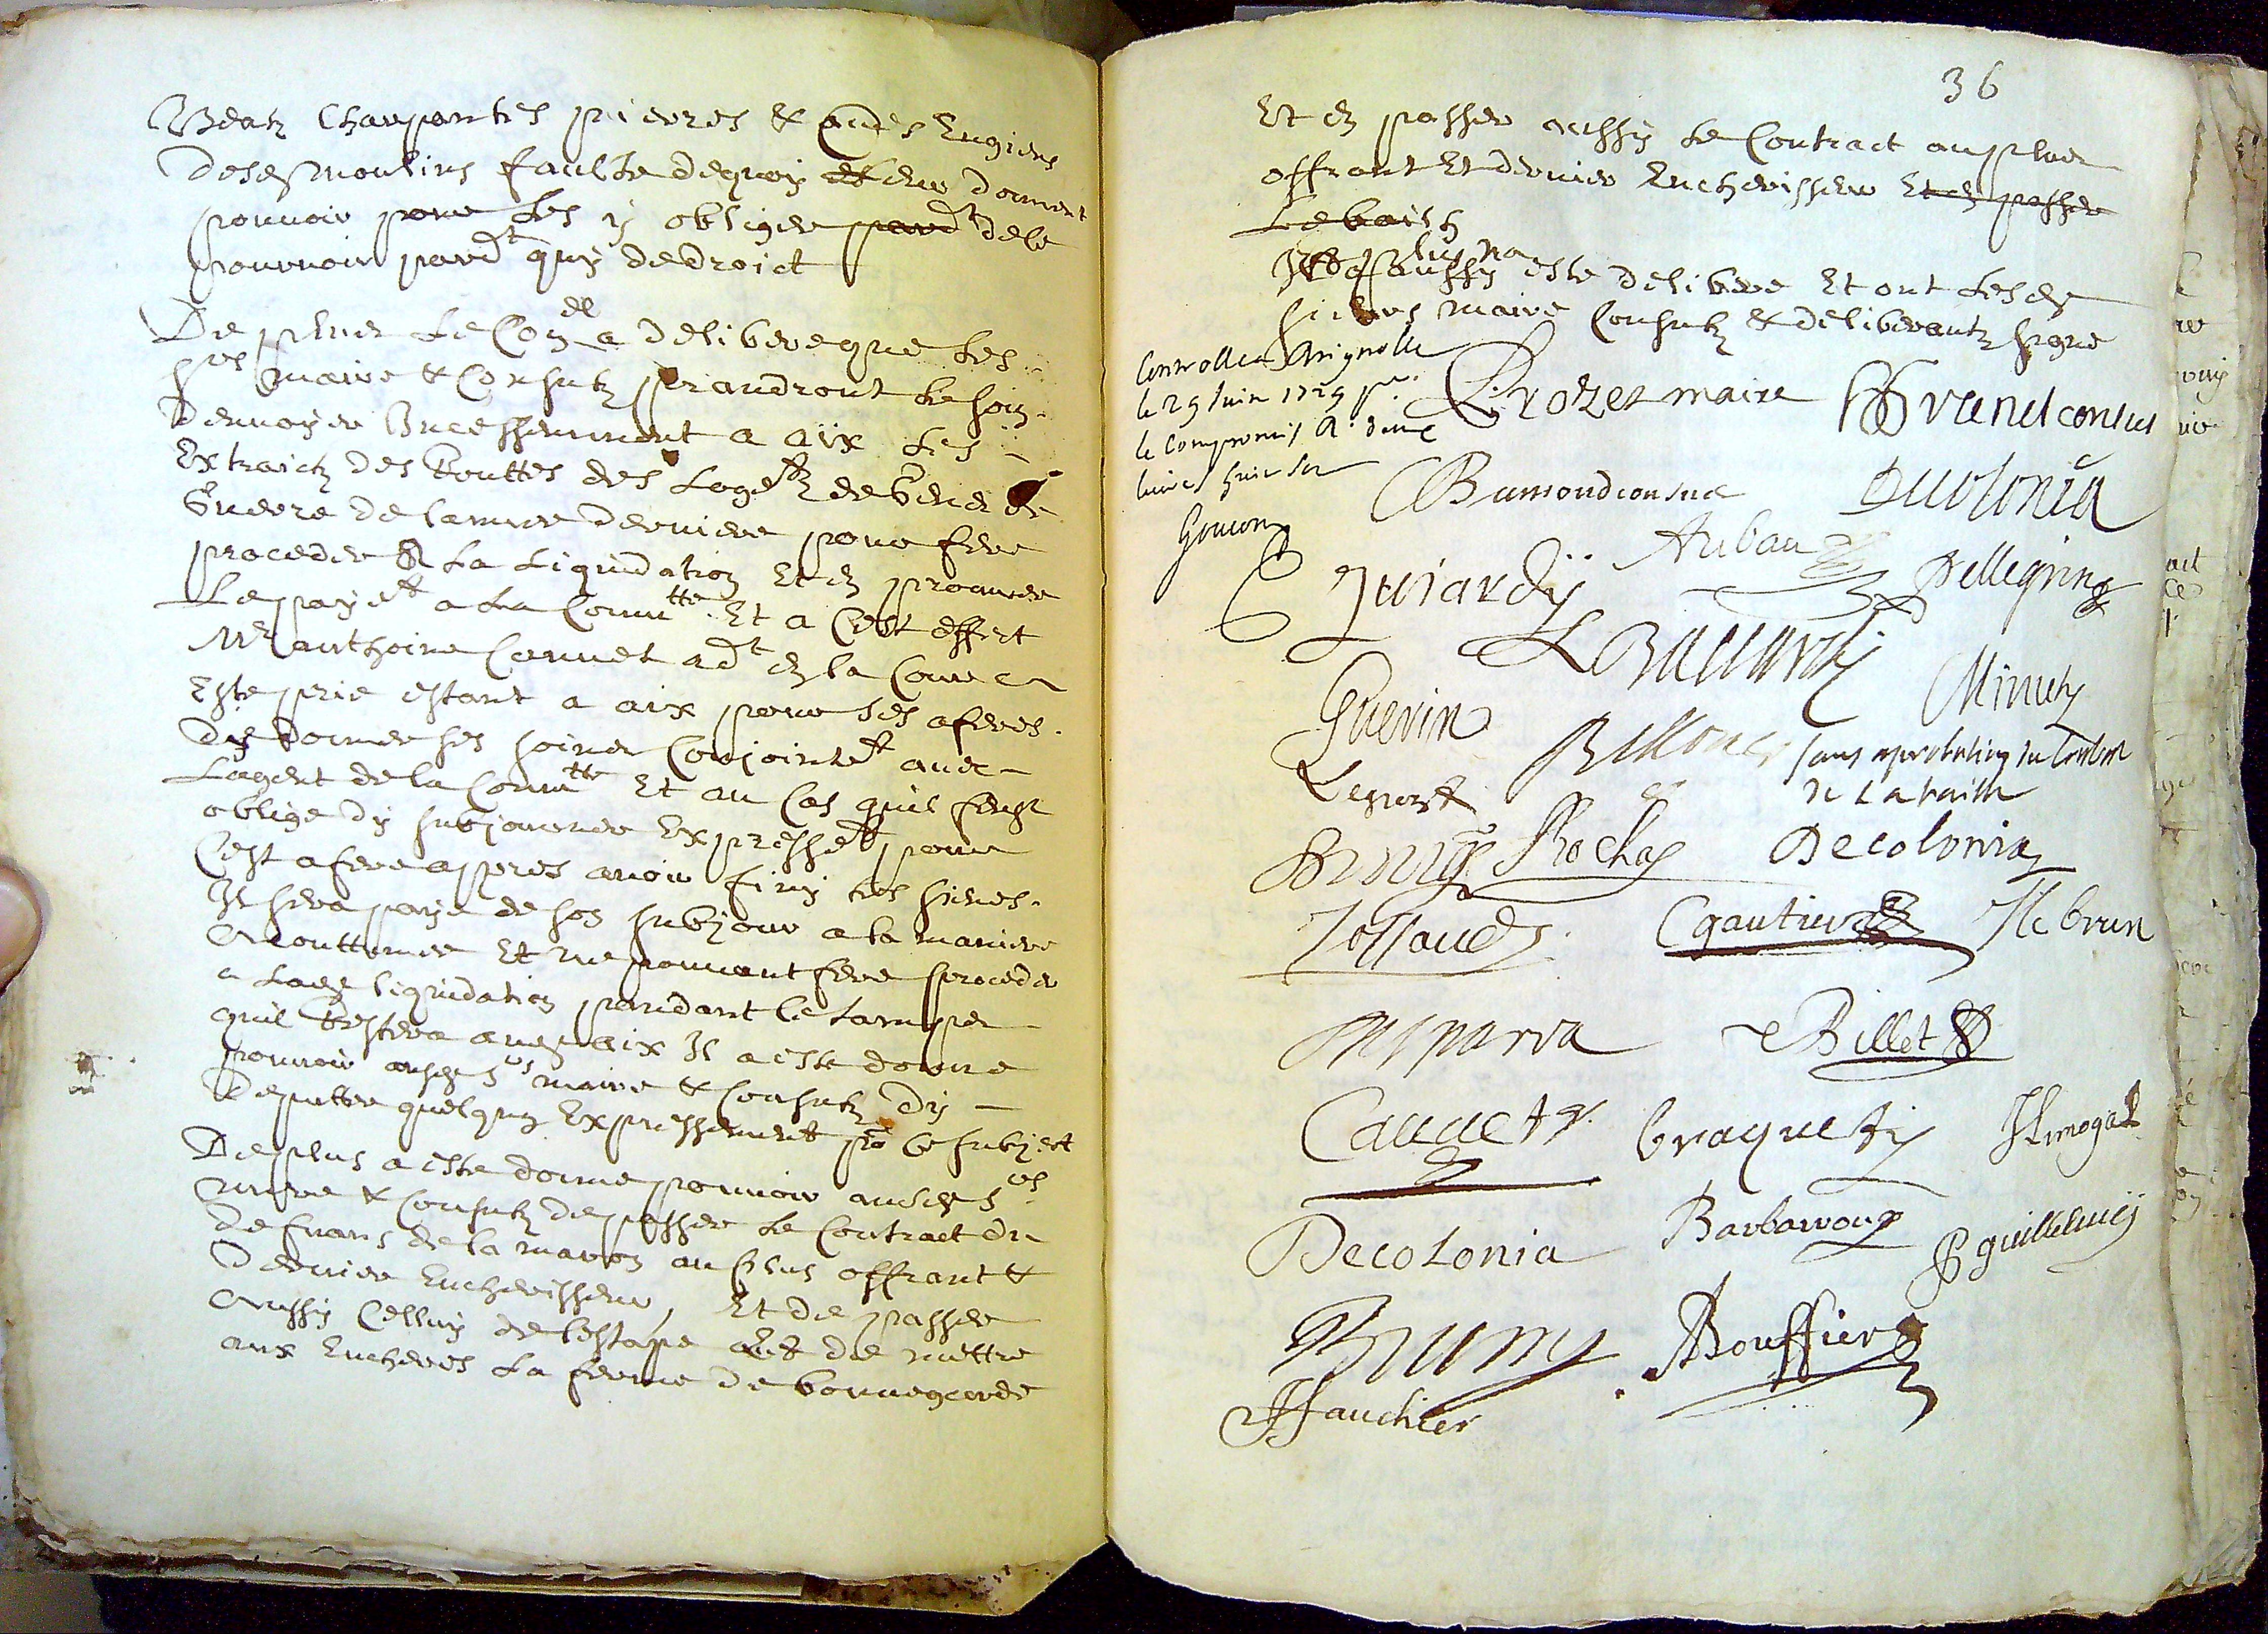 charpantes pierres & autres Engiens
desesmoulins faulte dequoy donnent
pouvoir pour les y obliger pard^t dele
pourvoir pard^t quy dedroict
De plus le Con^el a delibere que les
s^rs maire & Consulz prandront le soing
denvoyer Incessemment a aix les
Extraictz des Routtes des Logem^tz de
Guerre de lannee derniere pour fere
proceder a La Liquidation Et en procurer
Le payem^t a La Comm^tte Et a Cest effect
M^e anthoine Cannet ad^t en la Cour a
Este prie estant a aix pour ses aferes
dy donner ses soins Conjointem^t avec
Lagent de la Comm^tte Et au Cas quil feust
oblige dy subjourner Expressem^t pour
Cest afere appres avoir finy les sienes
Il sera paye de son subjour a la maniere
acouttumee Et ne pouvant fere proceder
a Lade liquidation pandant le tamps
quil Restera aix Il a este donne
pouvoir ausd s^rs maire & Consulz dy
deputter quelqun Expressement po^r ce subject
De plus a este donne pouvoir ausd s^rs
maire & Consulz de passer le Contract du
de la maron au plus offrant &
dernier Encherisseur, Et de passer
aussy Celluy de lestape Et de mettre
aux Encheres La ferme de bonnegarde
36
Et en passer aussy le Contract au plus
offrant Et dernier Encherisseur Et en passer
Le bailh
aussy este delibere Et ont lesd
sieurs maire Consulz & deliberantz signe
Controlle a Brignolle
le 29 Juin 1729 p^r
le compromis R^e douze
livres huit sor
Goujon
Crozet maire Brunet consul
Bumond consul Ducolonia
Auban
Juiardy Pellegrin
LBallardy
Guerin Minuty
Bellon sans aprobation du
Legier de La taille
Rochas Decolonia
Jollaud Cgautier JLebrun
Billet
Cannet braquety JLimogat
Decolonia Barbaroux Pguillelmy
Bruny ABouffier
JFauchier